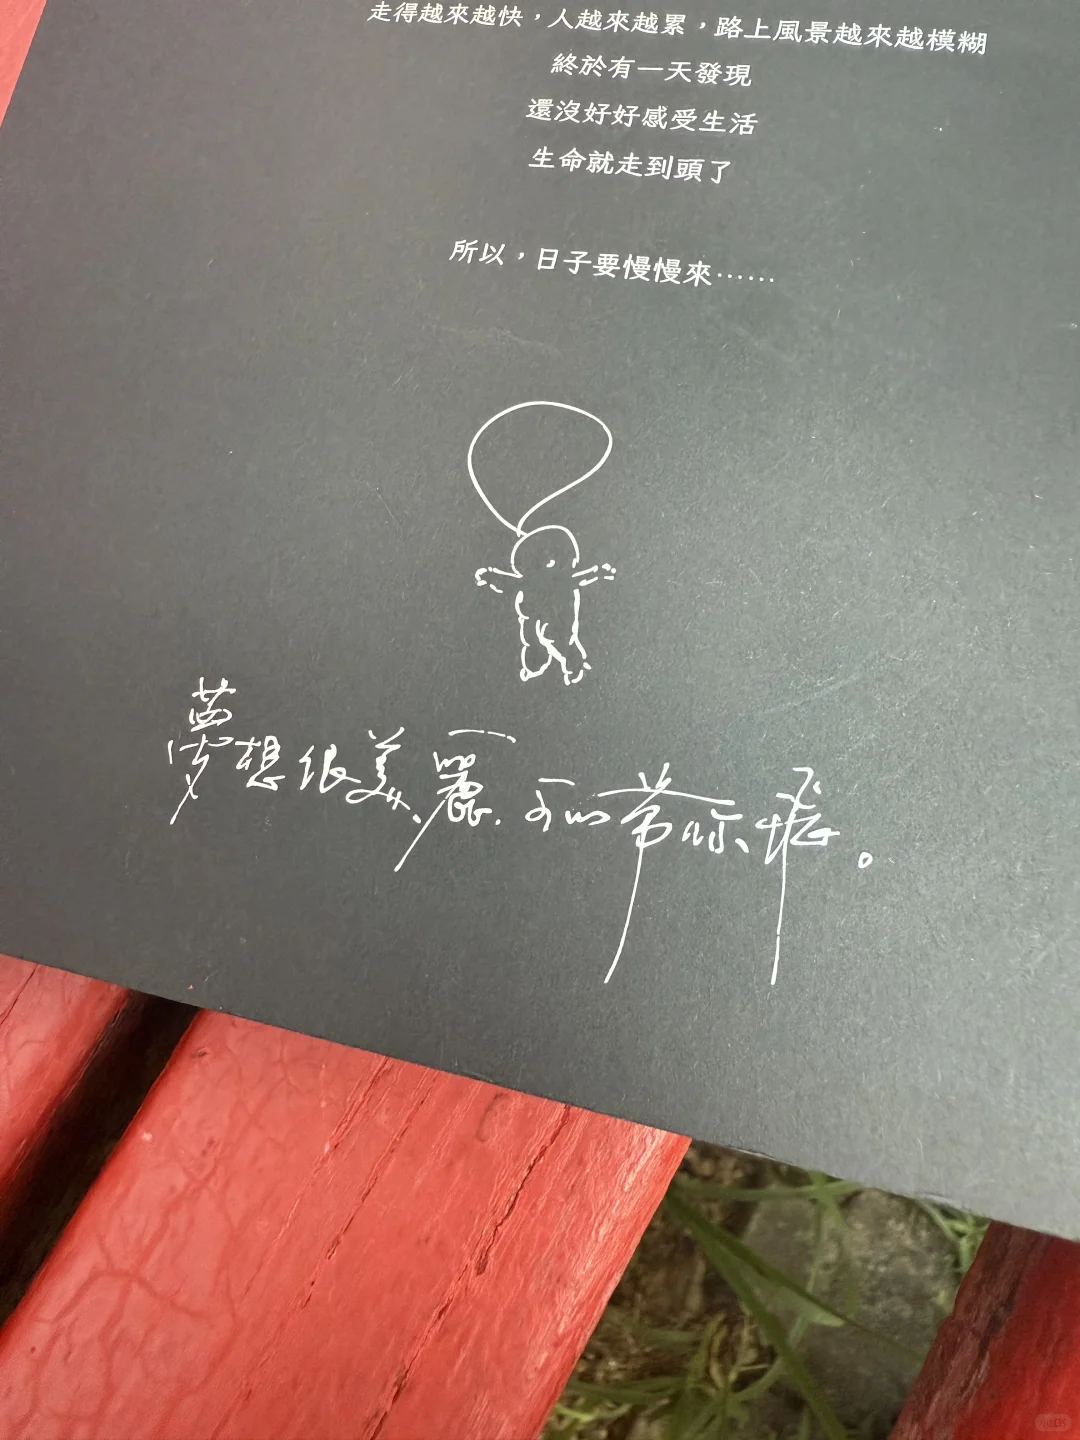 走得越來越快，人越來越累，路上風景越來越模糊
終於有一天發現
還沒好好感受生活
生命就走到頭了
所以，日子要慢慢來……
夢想很美麗.可以帶你飛。
小红书